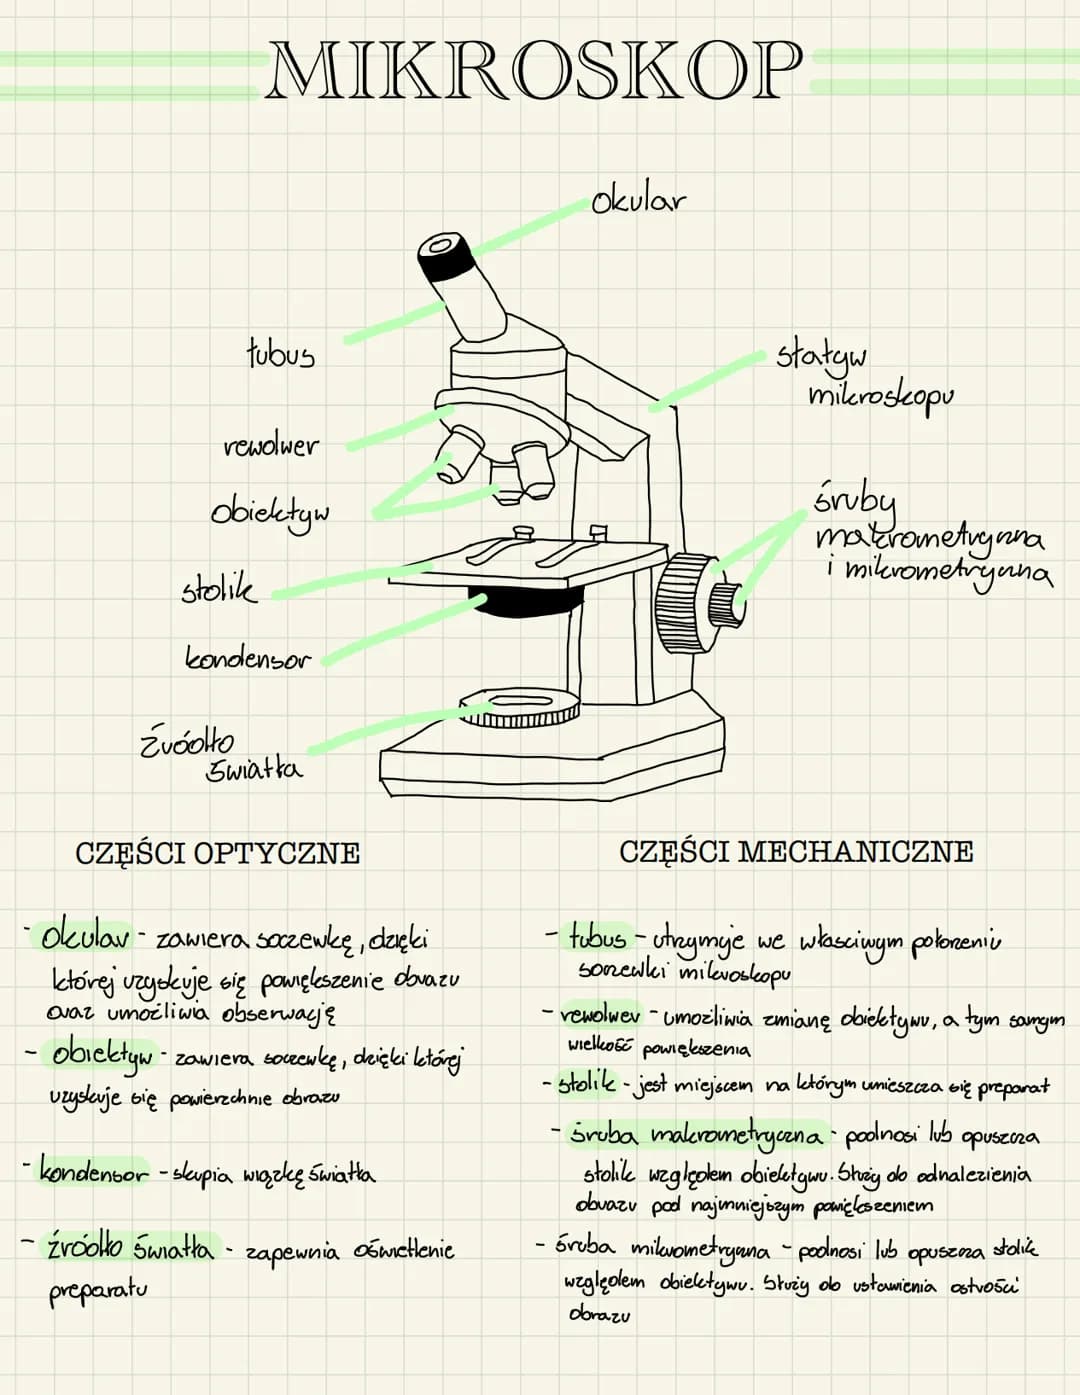 MIKROSKOP
okular
tubus
statyw
mikroskopu
rewolwer
obiektyw
śruby
makrometryczna
i mikrometryczna
stolik
kondensor
źródło
światła
CZĘŚCI OPTYCZNE
CZĘŚCI MECHANICZNE
- okular - zawiera soczewkę, dzięki
której uzyskuje się powiększenie obrazu
oraz umożliwia obserwację
- obiektyw - zawiera soczewkę, dzięki której
uzyskuje się powierzchnie obrazu
- kondensor - skupia wiązkę światła
- źródło światła - zapewnia oświetlenie
preparatu
- tubus - utrzymuje we właściwym położeniu
soczewki mikroskopu
- rewolwer - umożliwia zmianę obiektywu, a tym samym
wielkość powiększenia
- stolik - jest miejscem na którym umieszcza się preparat
- śruba makrometryczna - podnosi lub opuszcza
stolik względem obiektywu. Służy do odnalezienia
obrazu pod najmniejszym powiększeniem
- śruba mikrometryczna - podnosi lub opuszcza stolik
względem obiektywu. Służy do ustawienia ostrości
obrazu